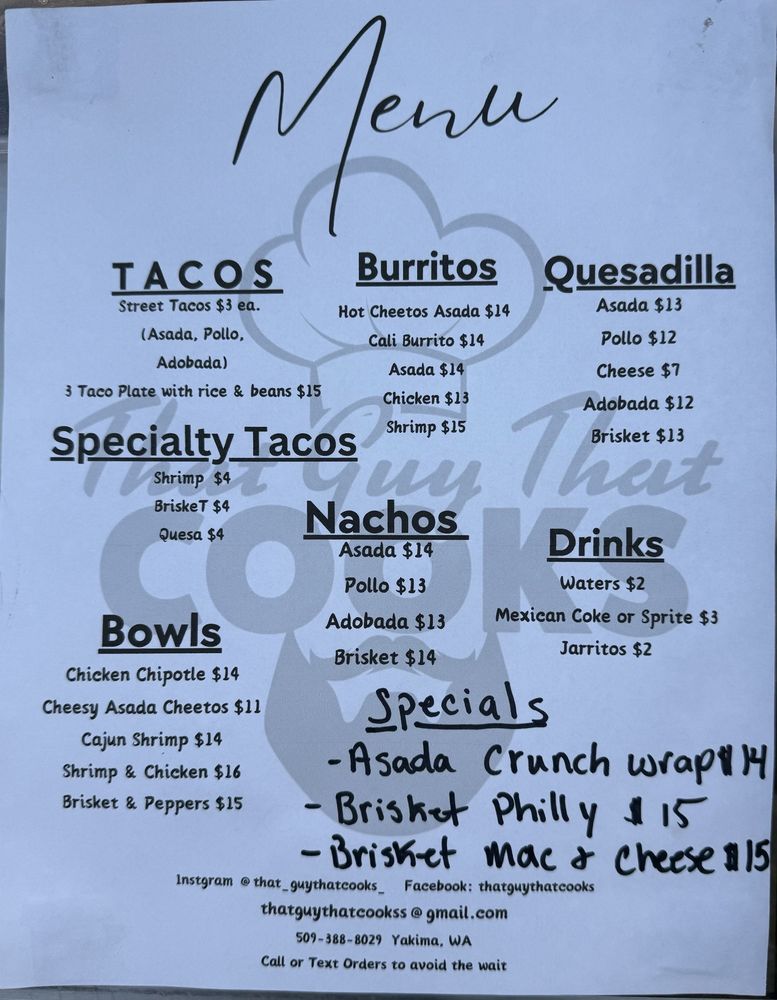 Menu
TACOS
Street Tacos $3 ea.
(Asada, Pollo,
Adobada)
3 Taco Plate with rice & beans $15
Burritos
Hot Cheetos Asada $14
Cali Burrito $14
Asada $14
Chicken $13
Shrimp $15
Quesadilla
Asada $13
Pollo $12
Cheese $7
Adobada $12
Brisket $13
Specialty Tacos
Shrimp $4
BriskeT $4
Quesa $4
Nachos
Asada $14
Pollo $13
Adobada $13
Brisket $14
Drinks
Waters $2
Mexican Coke or Sprite $3
Jarritos $2
Bowls
Chicken Chipotle $14
Cheesy Asada Cheetos $11
Cajun Shrimp $14
Shrimp & Chicken $16
Brisket & Peppers $15
Specials
-Asada Crunch wrap $14
-Brisket Philly $15
-Brisket Mac & Cheese $15
That Guy That
COOKS
Instgram @that_guythatcooks_ Facebook: thatguythatcooks
thatguythatcookss@gmail.com
509-388-8029 Yakima, WA
Call or Text Orders to avoid the wait